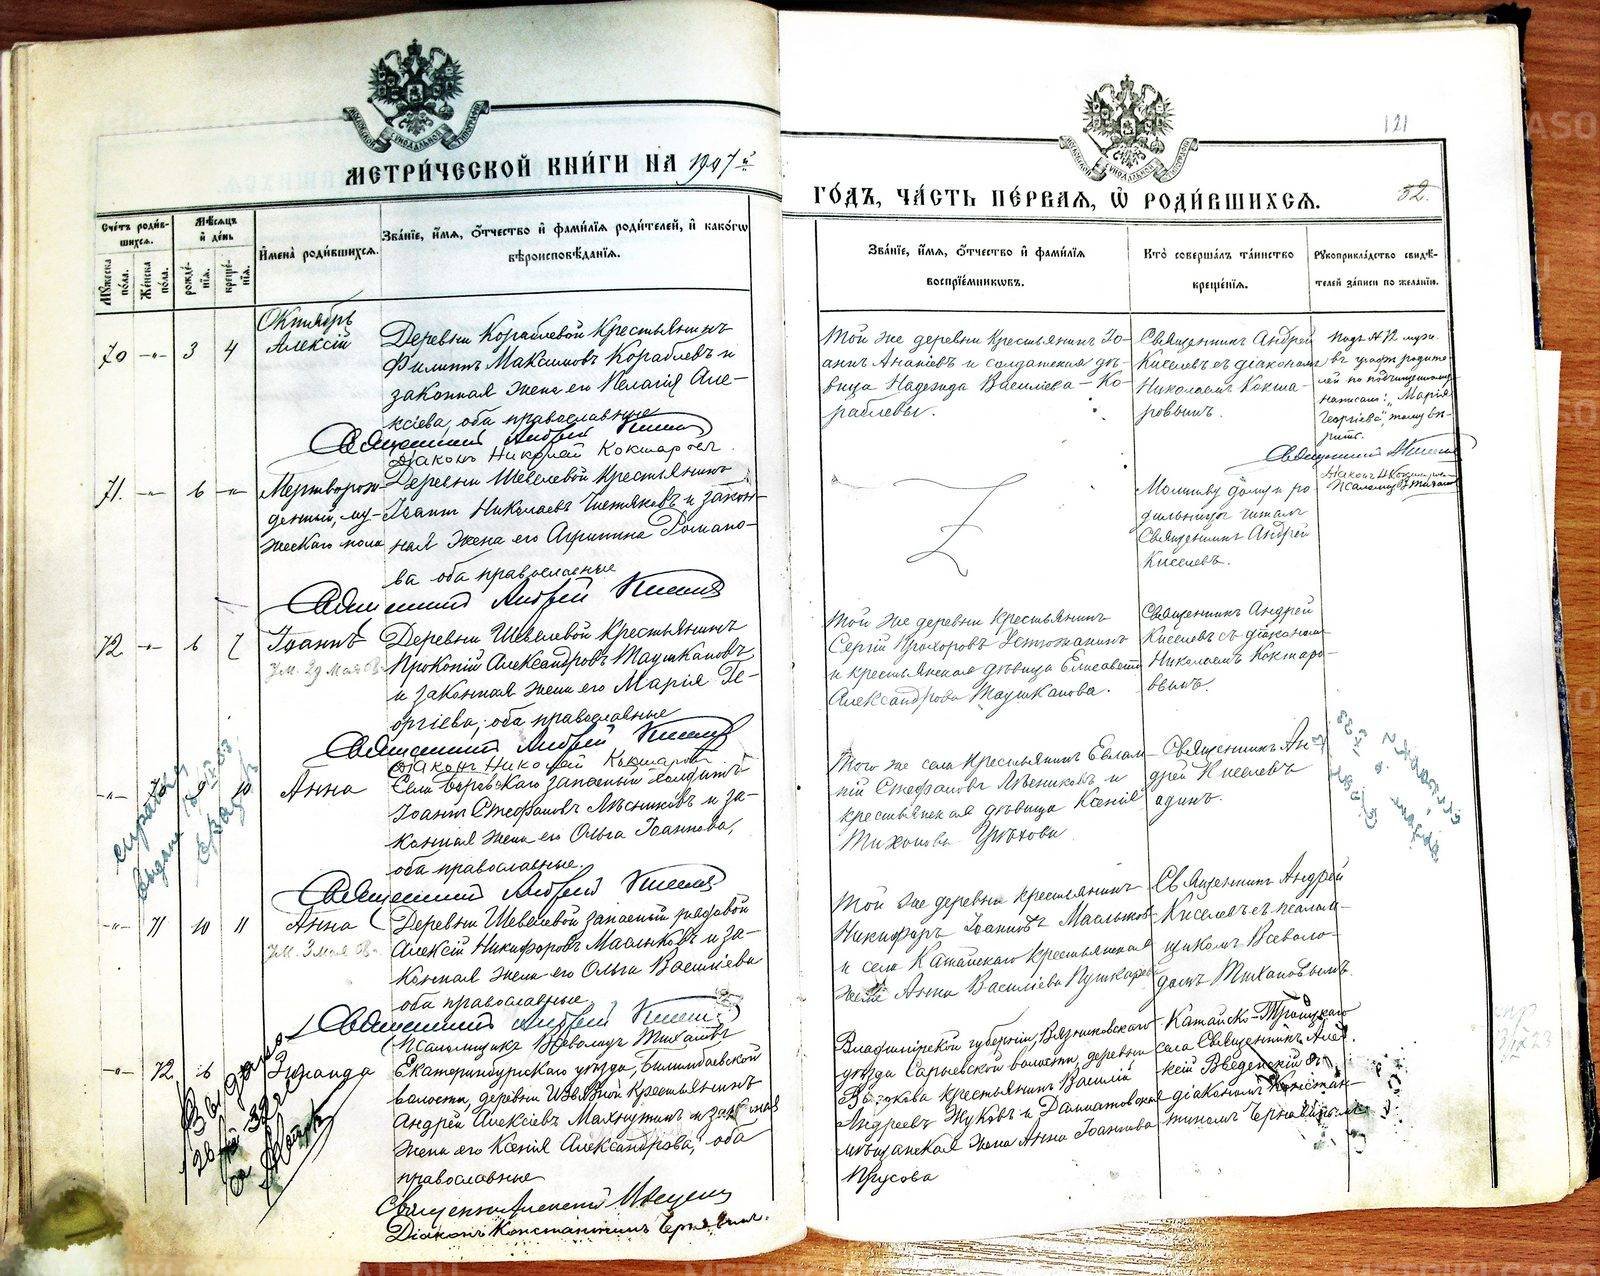 МЕТРИ́ЧЕСКОЙ КНИ́ГИ НА 1907й
ГО́ДЪ, ЧА́СТЬ ПЕ́РВАЯ, Ѡ РОДИ́ВШИХСЯ.
121
52.
Сче́тъ роди́в-
шихся.
Мѣсяцъ
и де́нь
Му́жеска по́ла.
Же́нска по́ла.
рожде́-
нія.
креще́-
нія.
Имена̀ роди́вшихся.
Зва́ніе, и́мя, о́тчество и фами́лія роди́телей, и како́гѡ
вѣроисповѣ́данія.
Зва́ніе, и́мя, о́тчество и фами́лія
воспріе́мниковъ.
Кто̀ соверша́лъ та́инство
креще́нія.
Рукоприкла́дство свидѣ́-
телей за́писи по жела́нію.
Октябрь
70 -„- 3 4
Алексій
Деревни Кораблевой Крестьянинъ
Филиппъ Максимовъ Кораблевъ и
законная жена его Пелагія Але-
ксіева, оба православные
Священникъ Андрей Киселевъ
Діаконъ Николай Кокшаровъ.
Той же деревни крестьянинъ Іо-
аннъ Ананіевъ и солдатская дѣ-
вица Надежда Василіева Ко-
раблевы.
Священникъ Андрей
Киселевъ съ діакономъ
Николаемъ Кокша-
ровымъ.
Подъ №72 муж.
въ графѣ родите-
лей по подчищенному
написано: „Марія
Георгіева", тому вѣ-
рить.
Священникъ А Киселевъ
71. -„- 6 -„-
Мертворож-
денный, му-
жескаго пола
Деревни Шевелевой Крестьянинъ
Іоаннъ Николаевъ и закон-
ная жена его Агрипина Романо-
ва оба православные
Священникъ Андрей Киселевъ
Z
Молитву дому и ро-
дильницѣ читалъ
Священникъ Андрей
Киселевъ.
72 -„- 6 7
Іоаннъ
Ум. 29 мая 08 г.
Деревни Шевелевой Крестьянинъ
Прокопій Александровъ Таушкановъ
и законная жена его Марія Ге-
оргіева, оба православные
Священникъ Андрей Киселевъ
Діаконъ Николай Кокшаровъ
Той же деревни крестьянинъ
Сергій Прохоровъ Устюжанинъ
и крестьянская дѣвица Елисавета
Александрова Таушканова.
Священникъ Андрей
Киселевъ съ діакономъ
Николаемъ Кокшаро-
вымъ.
-„- 70 9 10
Анна
Села запасный солдатъ
Іоаннъ Стефановъ Лѣсниковъ и за-
конная жена его Ольга Іоаннова,
оба православные.
Священникъ Андрей Киселевъ
Того же села Крестьянинъ Евлам-
пій Стефановъ Лѣсниковъ и
крестьянская дѣвица Ксенія
Тихонова Грѣхова
Священникъ Ан-
дрей Киселевъ
одинъ.
-„- 71 10 11
Анна
Ум. 3 мая 08 г.
Деревни Шевелевой запасный рядовой
Алексій Никифоровъ Масльковъ и за-
конная жена его Ольга Василіева
оба православные
Священникъ Андрей Киселевъ
Псаломщикъ Всеволодъ Тихановъ
Той же деревни крестьянинъ
Никифоръ Іоанновъ Масльковъ
и села Катайскаго крестьянская
жена Анна Василіева Пушкарева
Священникъ Андрей
Киселевъ съ псалом-
щикомъ Всеволо-
домъ Тихановымъ.
-„- 72 16
Зинаида
Екатеринбургскаго уѣзда, Билимбаевской
волости, деревни Крестьянинъ
Андрей Алексіевъ Махнутинъ и законная
жена его Ксенія Александрова, оба
православные
Священникъ Алексій Введенскій
Діаконъ Константинъ Чернавинъ.
Владимірской губерніи, Вязниковскаго
уѣзда Сарыевской волости, деревни
крестьянинъ Василій
Андреевъ Жуковъ и Далматовская
мѣщанская жена Анна Іоаннова
Прусова
Катайско-Троицкаго
села Священникъ Алек-
сій Введенскій съ
діакономъ Констан-
тиномъ Чернавинымъ.
справка
выдана
Выдано